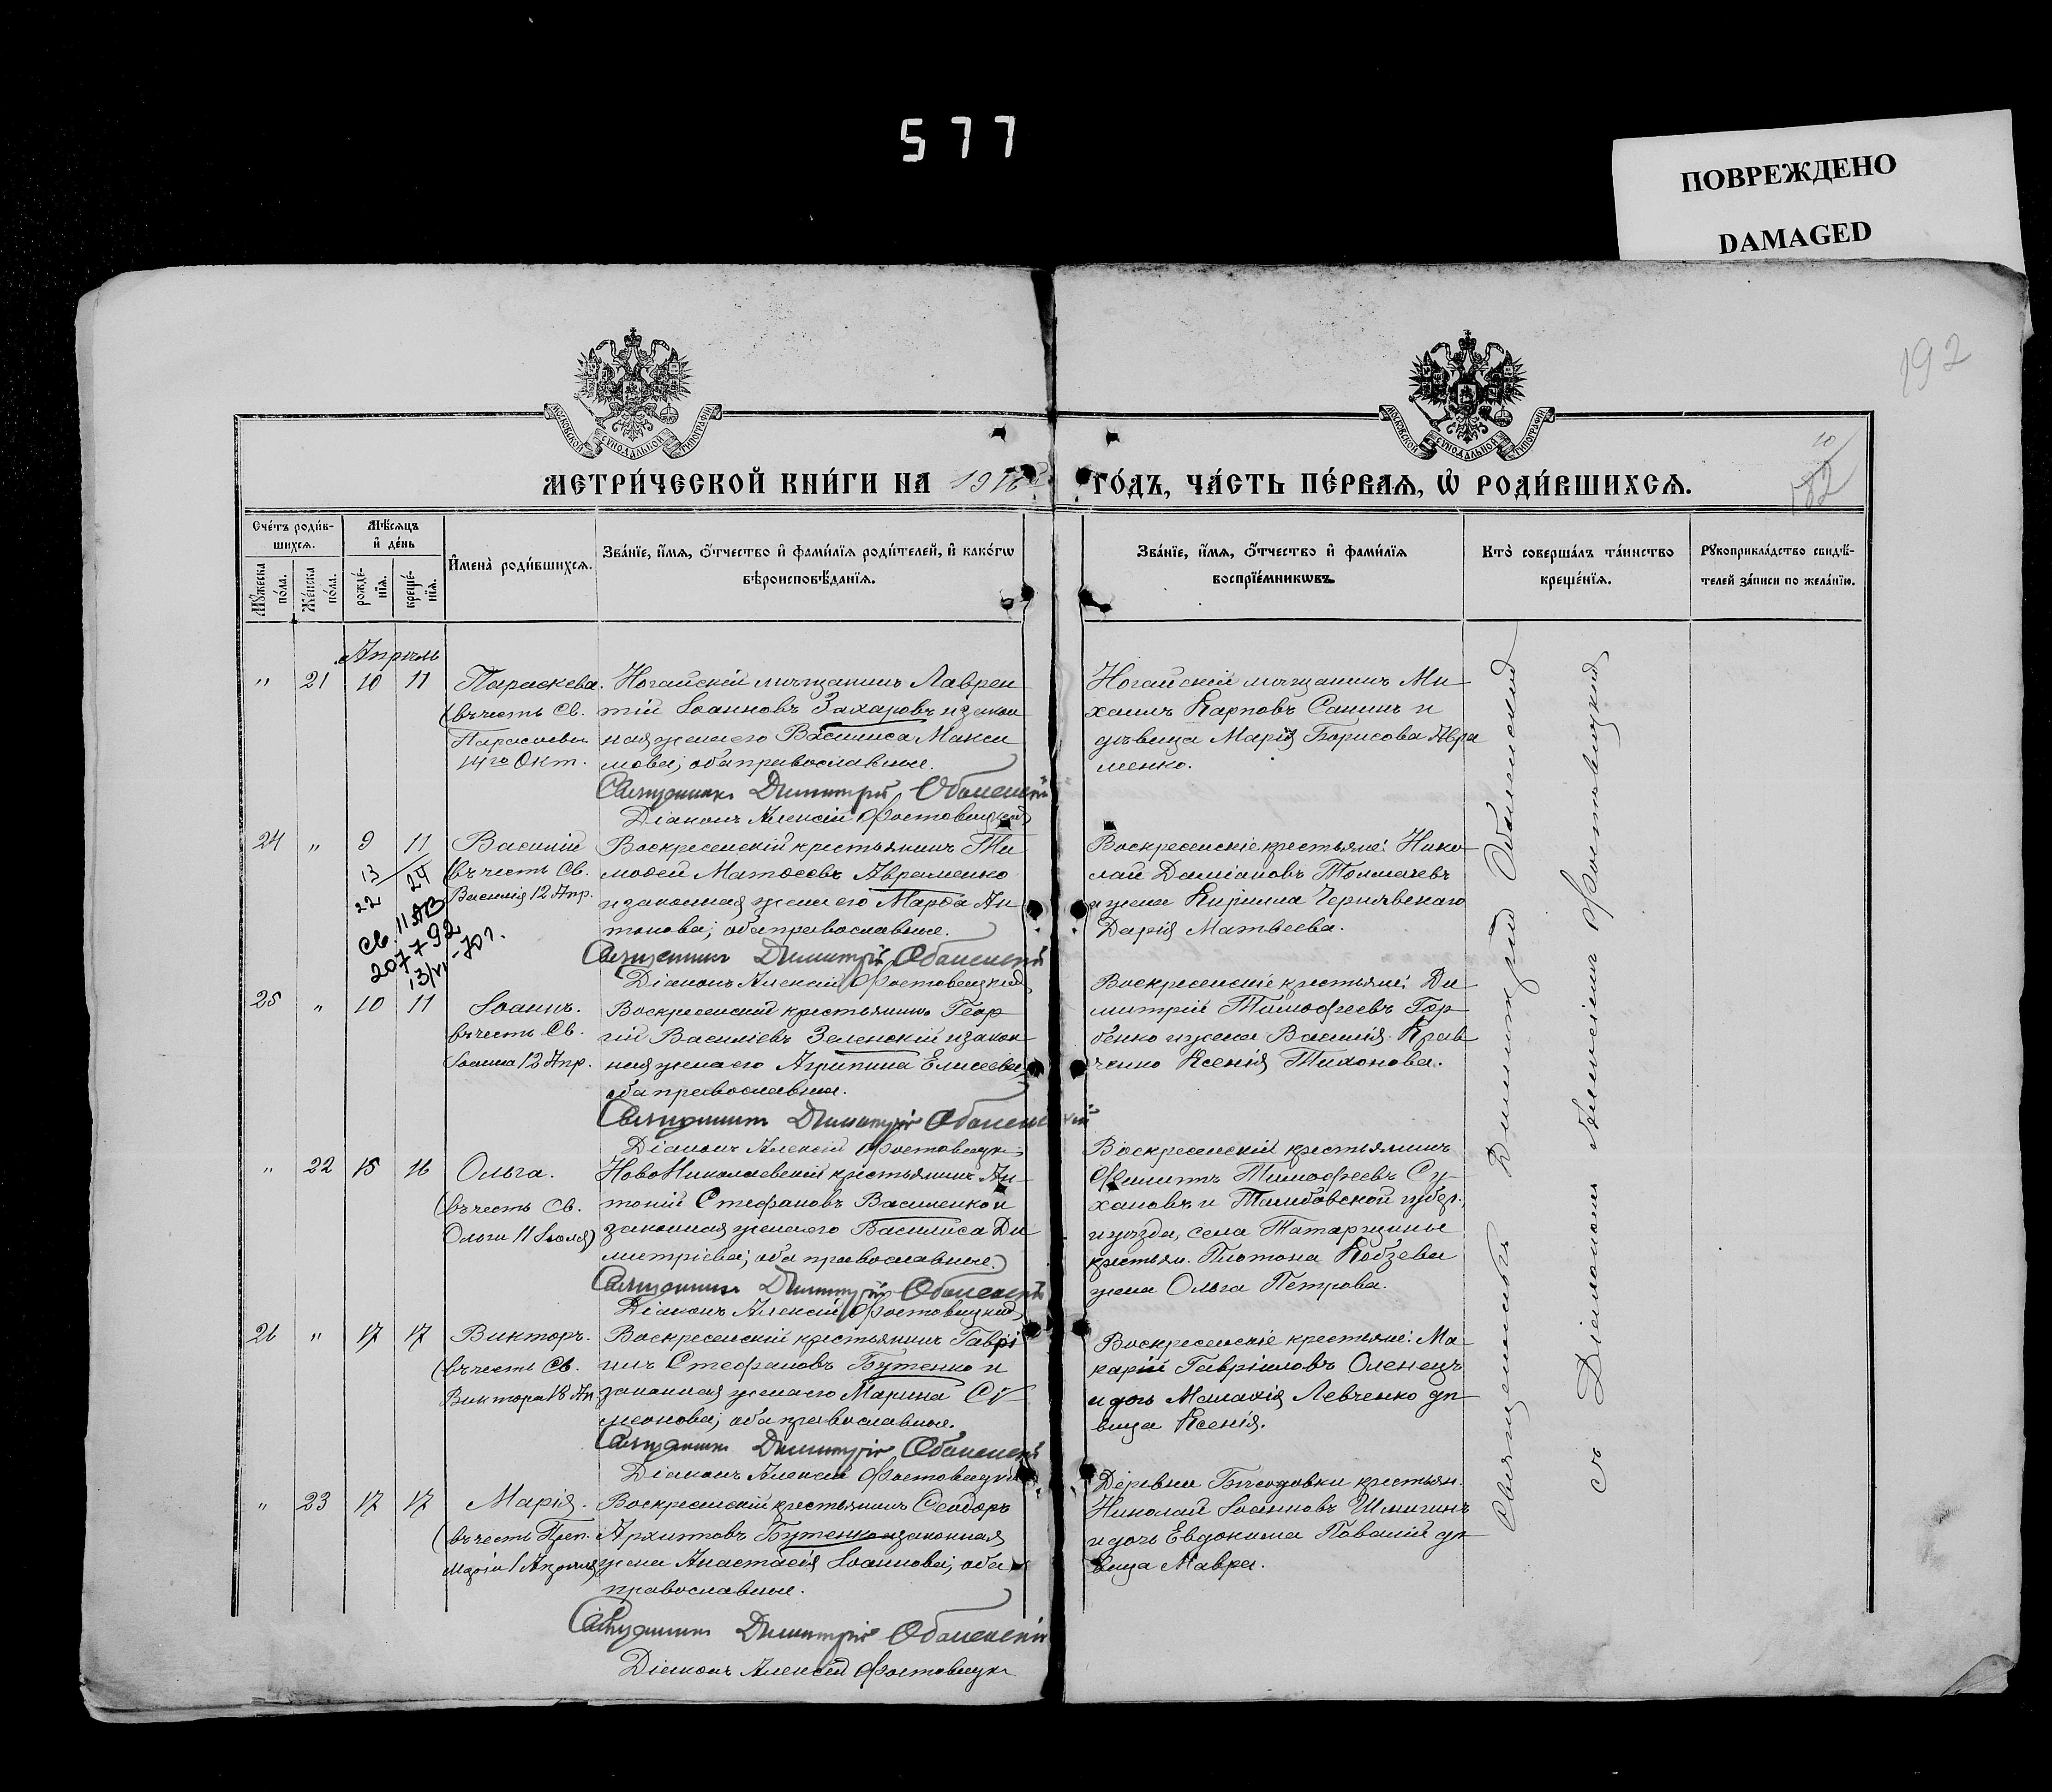 577
ПОВРЕЖДЕНО
DAMAGED
192
10
182
МОСКОВСКОЙ СѴНОДАЛЬНОЙ ТИПОГРАФІИ
МОСКОВСКОЙ СѴНОДАЛЬНОЙ ТИПОГРАФІИ
МЕТРИ́ЧЕСКОЙ КНИ́ГИ НА 1916
ГО́ДЪ, ЧА́СТЬ ПЕ́РВАѦ, Ѡ҆ РОДИ́ВШИХСѦ.
Сче́тъ роди́в-
шихсѧ.
Мѣ́сѧцъ
и҆ де́нь
Мꙋ́жеска
по́ла.
Же́нска
по́ла.
рожде́-
нїѧ.
креще́-
нїѧ.
И҆мена̀ роди́вшихсѧ.
Зва́нїе, и҆́мѧ, ѻ҆́тчество и҆ фами́лїѧ роди́телей, и҆ како́гѡ
вѣроисповѣ́данїѧ.
Зва́нїе, и҆́мѧ, ѻ҆́тчество и҆ фами́лїѧ
воспрїе́мникѡвъ.
Кто̀ соверша́лъ та́инство
креще́нїѧ.
Рꙋкоприкла́дство свидѣ́-
телей за́писи по жела́нїю.
Апрѣль
" 21 10 11
Параскева.
(въ честь Св.
Параскевы
14го Окт.
Ногайскій мѣщанинъ Лаврен
тій Іоанновъ Захаровъ и закон
ная жена его Василиса Макси
мова; оба православные.
Священникъ Димитрій Оболенскій
Діаконъ Алексій Фостовецкій
Ногайскій мѣщанинъ Ми
хаилъ Карповъ Санинъ и
дѣвица Марія Борисова Авра
менко.
24 " 9 11
13/22 24
Св. 11 АВ
207792
13/VI-70 г.
Василій
(въ честь Св.
Василія 12 Апр.
Воскресенскій крестьянинъ Ти
моѳей Матѳеевъ Авраменко
и законная жена его Марѳа Ан
тонова; оба православные.
Священникъ Димитрій Оболенскій
Діаконъ Алексій Фостовецкій
Воскресенскіе крестьяне: Нико
лай Даміановъ Толмачевъ
и жена Кирилла Чернявскаго
Дарія Матвеева.
25 " 10 11
Іоаннъ.
въ честь Св.
Іоанна 12 Апр.
Воскресенскій крестьянинъ Геор
гій Василіевъ Зеленскій и закон
ная жена его Агрипина Елисеева,
оба православные.
Священникъ Димитрій Оболенскій
Діаконъ Алексій Фостовецкій
Воскресенскіе крестьяне: Ди
митрій Тимофеевъ Гор
бенко и жена Василія Крав
ченко Ксенія Тихонова.
" 22 15 16
Ольга.
(въ честь Св.
Ольги 11 Іюля)
НовоНиколаевскій крестьянинъ Ан
тоній Стефановъ Василенко и
законная жена его Василиса Ди
митріева; оба православные.
Священникъ Димитрій Оболенскій
Діаконъ Алексій Фостовецкій
Воскресенскій крестьянинъ
Филиппъ Тимофеевъ Су-
хановъ и Тамбовской губер.,
и уѣзда, села Татарщины
крестьян. Платона Кобзева
жена Ольга Петрова.
26 " 17 17
Викторъ.
(въ честь Св.
Виктора 18 Ап
Воскресенскій крестьянинъ Гаврі
илъ Стефановъ Бутенко и
законная жена его Марина Си
меонова; оба православные.
Священникъ Димитрій Оболенскій
Діаконъ Алексій Фостовецкій
Воскресенскіе крестьяне: Ма
карій Гавріиловъ Оленецъ
и дочь Малахія Левченко дѣ
вица Ксенія.
" 23 17 17
Марія.
(въ честь Преп.
Маріи 1 Апрѣля)
Воскресенскій крестьянинъ Ѳеодоръ
Архиповъ Бутенко и законная
жена Анастасія Іоаннова; оба
православные.
Священникъ Димитрій Оболенскій
Діаконъ Алексій Фостовецкі
Деревни крестьян.
Николай Іоанновъ Шмыгинъ
и дочь Евдокима Поваліи дѣ
вица Мавра.
Священникъ Димитрій Оболенскій
съ Діакономъ Алексіемъ Фостовецкимъ